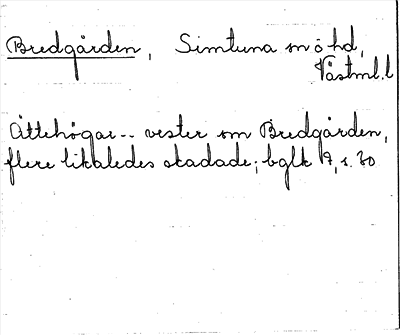 Bredgården, Simtuna sn o hd,
Västml.l
Ättehögar -- vester om Bredgården,
flere likaledes skadade; bglk 9, s. 30